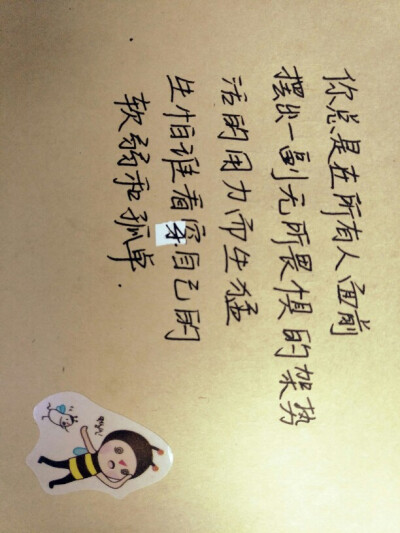 你总是在所有人面前
摆出一副无所畏惧的架势
活的用力而生猛
生怕谁看穿自己的
软弱和孤单.